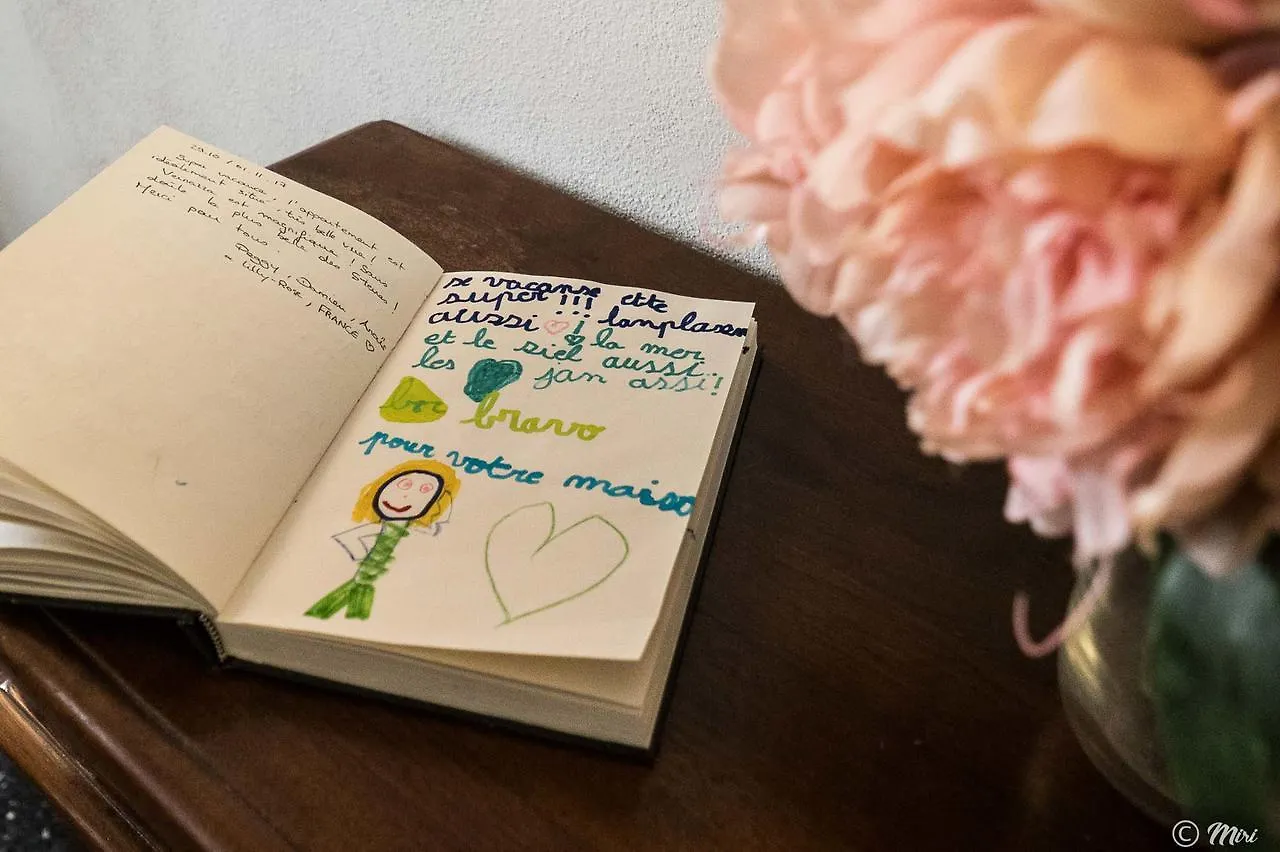 29.10 / 01.11.17
Super vacance, l'appartement est
idéalement situé, très belle vue !
Vernazza est magnifique ! Sans
doute la plus belle des 5 terres !
Merci pour tous.
Peggy, Damien,
Lilly-Rose, FRANCE ♡
se vacanse ette
super !!! lanplasem
aussi ♡ ! la mer
et le siel aussi.
les jan assi !
bravo
pour votre maiso
© Miri